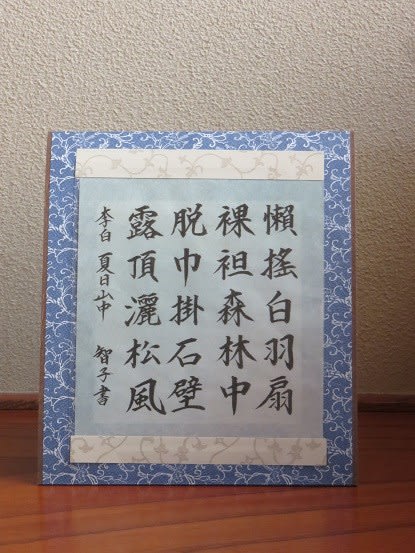 懶搖白羽扇
裸袒森林中
脱巾掛石壁
露頂灑松風
李白 夏日山中 智子書